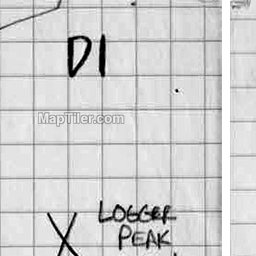 D1
MapTiler.com
X LOGGER
PEAK